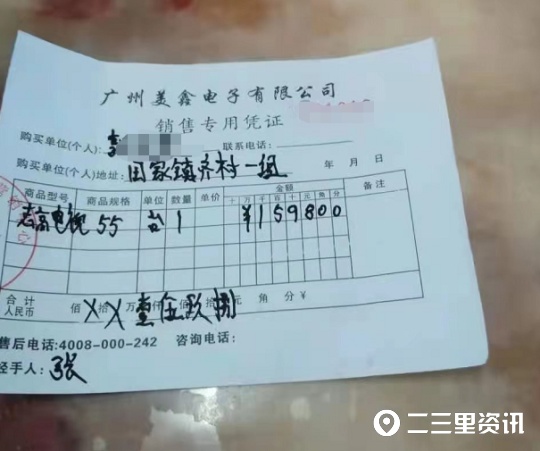 广州美鑫电子有限公司
销售专用凭证
购买单位(个人): 联系电话:
购买单位(个人)地址: 田家镇齐村一组 年 月 日
商品型号 商品规格 单位 数量 单价 金额 备注
十 万 千 百 十 元 角 分
志高电视 55 台 1 ¥159800
合计人民币 佰 X 拾 X 万 壹 仟 伍 佰 玖 拾 捌 元 角 分 ¥
售后电话:4008-000-242 咨询电话:
经手人: 张
二三里资讯